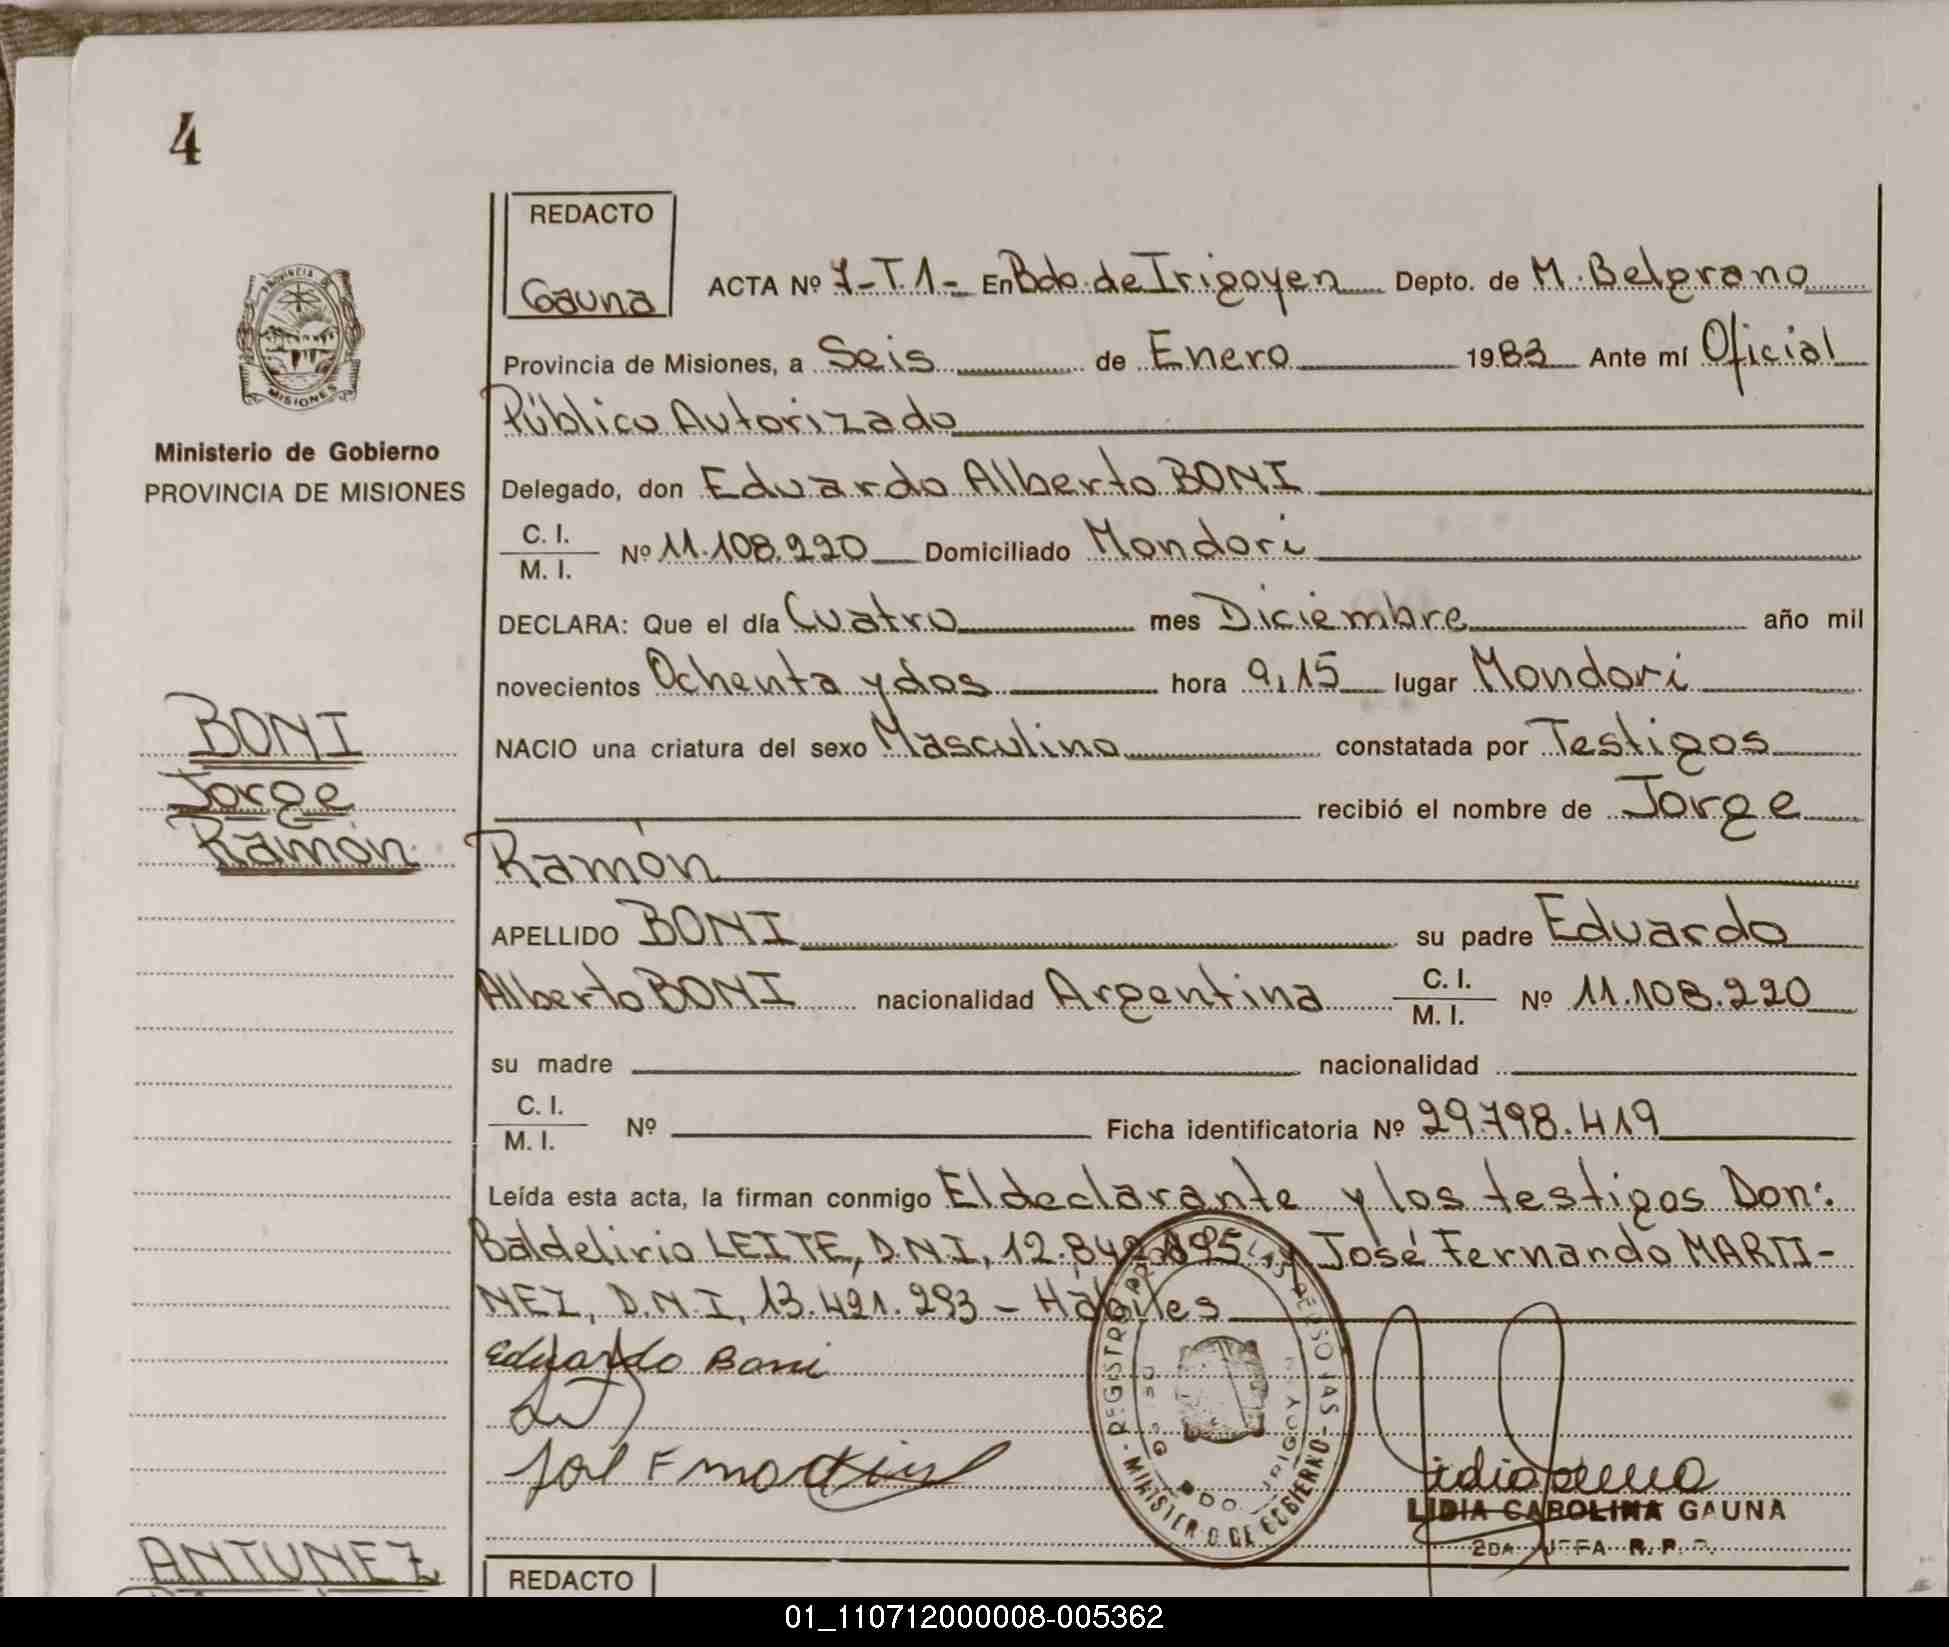 4
REDACTO
Gauna
ACTA Nº 7-T.1- En Bdo. de Irigoyen Depto. de M. Belgrano
Provincia de Misiones, a Seis de Enero 1983 Ante mí Oficial
Público Autorizado
Delegado, don Eduardo Alberto BONI
C. I.
M. I.
Nº 11.108.220 Domiciliado Mondori
DECLARA: Que el día Cuatro mes Diciembre año mil
novecientos Ochenta y dos hora 9,15 lugar Mondori
NACIO una criatura del sexo Masculino constatada por Testigos
recibió el nombre de Jorge
Ramón
APELLIDO BONI su padre Eduardo
Alberto BONI nacionalidad Argentina C. I. M. I. Nº 11.108.220
su madre nacionalidad
C. I.
M. I.
Nº Ficha identificatoria Nº 29.798.419
Leída esta acta, la firman conmigo El declarante y los testigos Don:
Baldelirio LEITE, D.N.I, 12. y José Fernando MARTI-
NEZ, D.N.I, 13.421.293 - Hábiles
Eduardo Boni
PROVINCIA
MISIONES
Ministerio de Gobierno
PROVINCIA DE MISIONES
BONI
Jorge
Ramón
MINISTERIO DE GOBIERNO
LIDIA CAROLINA GAUNA
ANTUNEZ
REDACTO
01_110712000008-005362